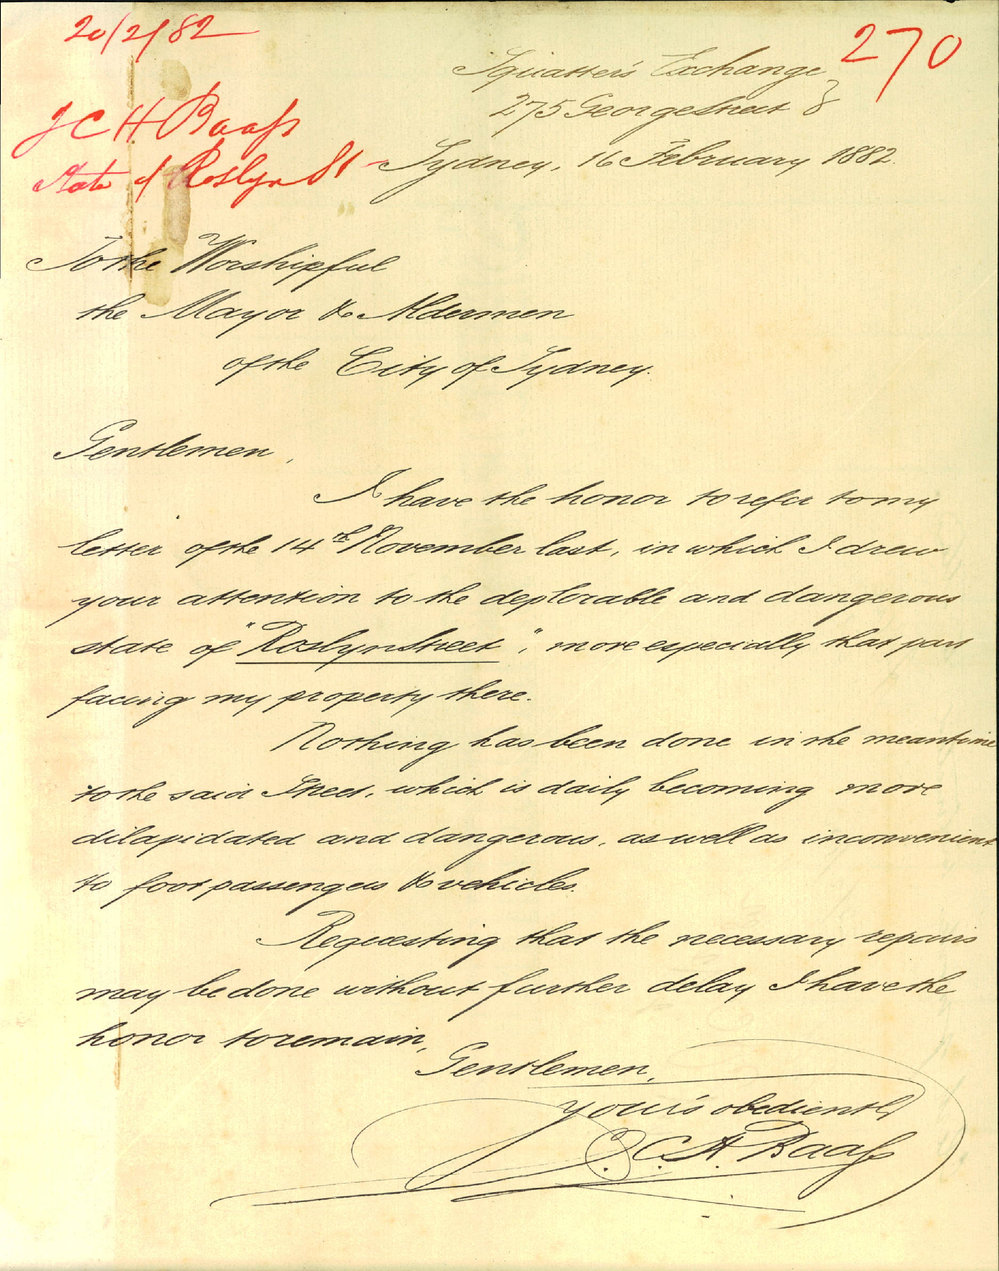 20/2/82
270
J C H Baass
State of Roslyn St
Squatter's Exchange
275 George Street
Sydney, 16 February 1882.
To the Worshipful
the Mayor & Aldermen
of the City of Sydney.
Gentlemen,
I have the honor to refer to my
letter of the 14th November last, in which I drew
your attention to the deplorable and dangerous
state of "Roslyn Street", more especially that part
facing my property there.
Nothing has been done in the meantime
to the said Street, which is daily becoming more
dilapidated and dangerous, as well as inconvenient
to foot passengers & vehicles.
Requesting that the necessary repairs
may be done without further delay I have the
honor to remain,
Gentlemen,
Your's obediently
J. C. H. Baass